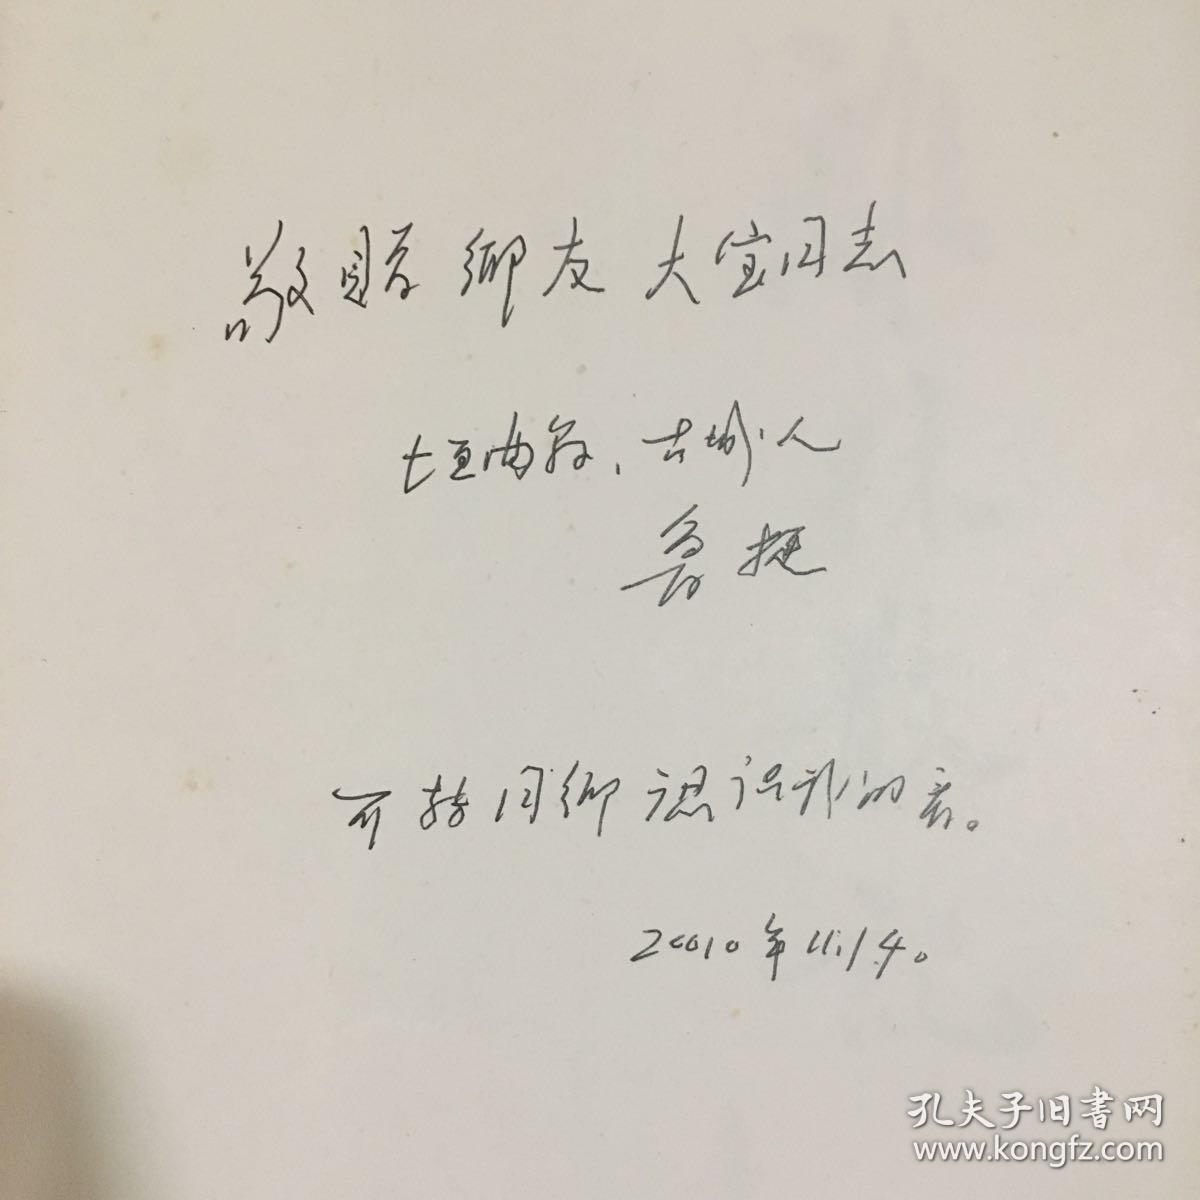 敬赠 鄉友 大宝同志
垣曲县、古城人
鲁挺
可转同鄉 认识我的看。
2010年11.14。
孔夫子旧書网
www.kongfz.com